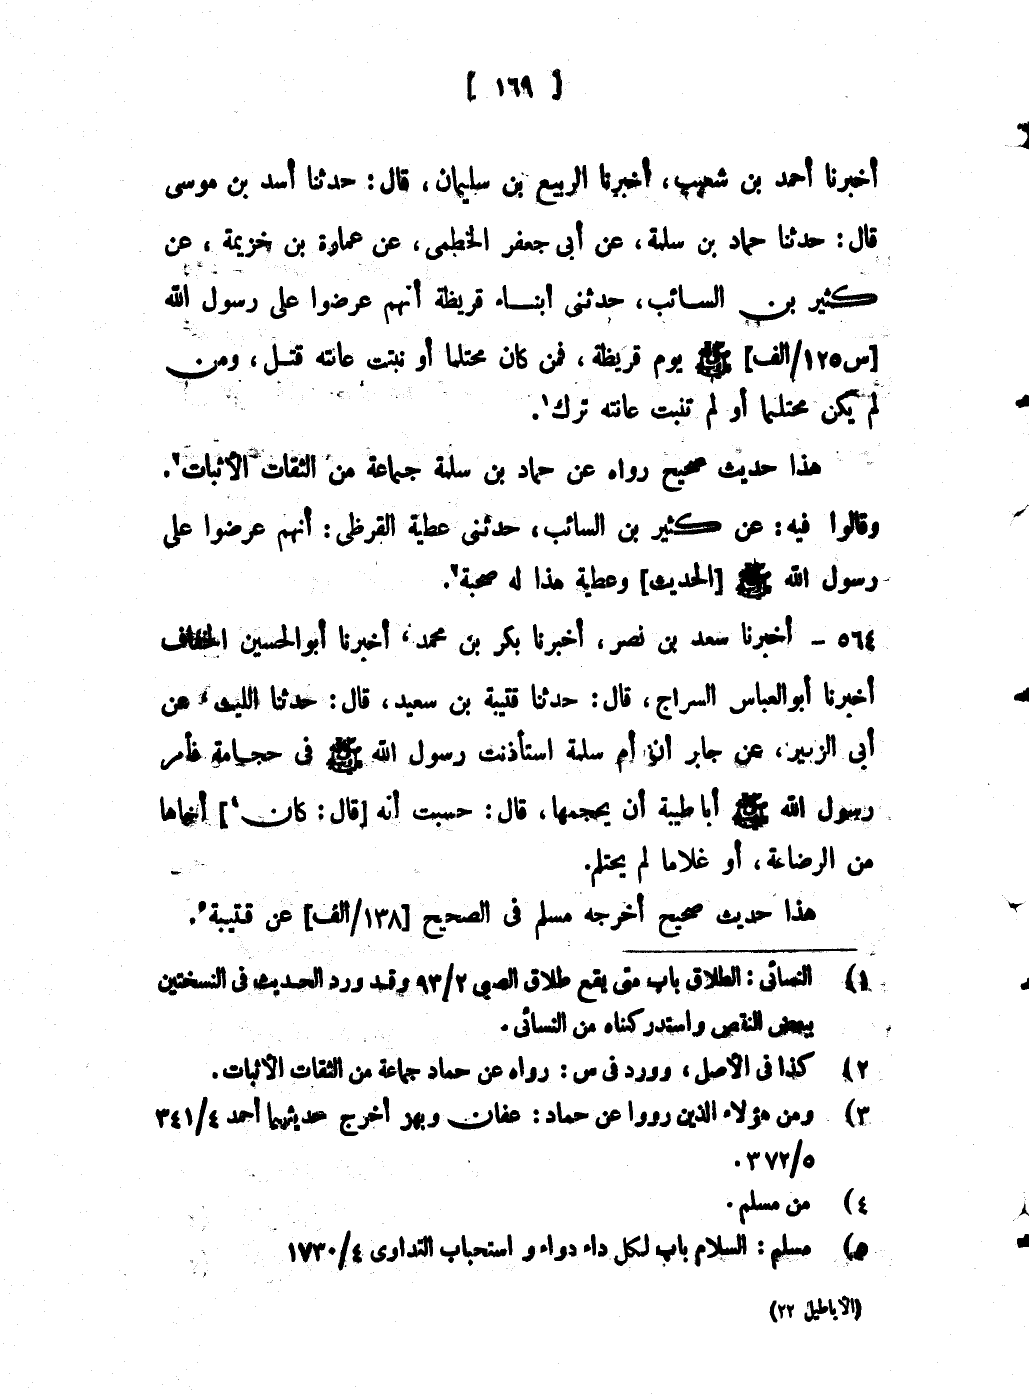 [ ١٦٩ ]
أخبرنا أحمد بن شعيب، أخبرنا الربيع بن سليمان، قال: حدثنا أسد بن موسى
قال: حدثنا حماد بن سلمة، عن أبى جعفر الخطمى، عن عمارة بن خزيمة ، عن
كثير بن السائب، حدثنى أبناء قريظة أنهم عرضوا على رسول الله
[س١٢٥/الف] ﷺ يوم قريظة ، فمن كان محتلما أو نبتت عانته قتل ، ومن
لم يكن محتلما أو لم تنبت عانته ترك١.
هذا حديث صحيح رواه عن حماد بن سلمة جماعة من الثقات الأثبات٢.
وقالوا فيه: عن كثير بن السائب، حدثنى عطية القرظى: أنهم عرضوا على
رسول الله ﷺ [الحديث] وعطية هذا له صحبة٣.
٥٦٤ - أخبرنا سعد بن نصر، أخبرنا بكر بن محمد، أخبرنا أبوالحسين الخفاف
أخبرنا أبوالعباس السراج، قال: حدثنا قتيبة بن سعيد، قال: حدثنا الليث، عن
أبى الزبير، عن جابر أن أم سلمة استأذنت رسول الله ﷺ فى حجامة فأمر
رسول الله ﷺ أباطيبة أن يحجمها، قال: حسبت أنه [قال: كان٤] أخاها
من الرضاعة، أو غلاما لم يحتلم.
هذا حديث صحيح أخرجه مسلم فى الصحيح [١٣٨/الف] عن قتيبة٥.
١) النسائى : الطلاق باب متى يقع طلاق الصبى ٩٣/٢ وقد ورد الحديث فى النسختين
ببعض النقص واستدركناه من النسائى .
٢) كذا فى الأصل، وورد فى س : رواه عن حماد جماعة من الثقات الأثبات .
٣) ومن هؤلاء الذين رووا عن حماد : عفان وبهز أخرج حديثهما أحمد ٣٤١/٤
٣٧٢/٥ .
٤) من مسلم .
٥) مسلم : السلام باب لكل داء دواء و استحباب التداوى ١٧٣٠/٤
(الأباطيل ٢٢)